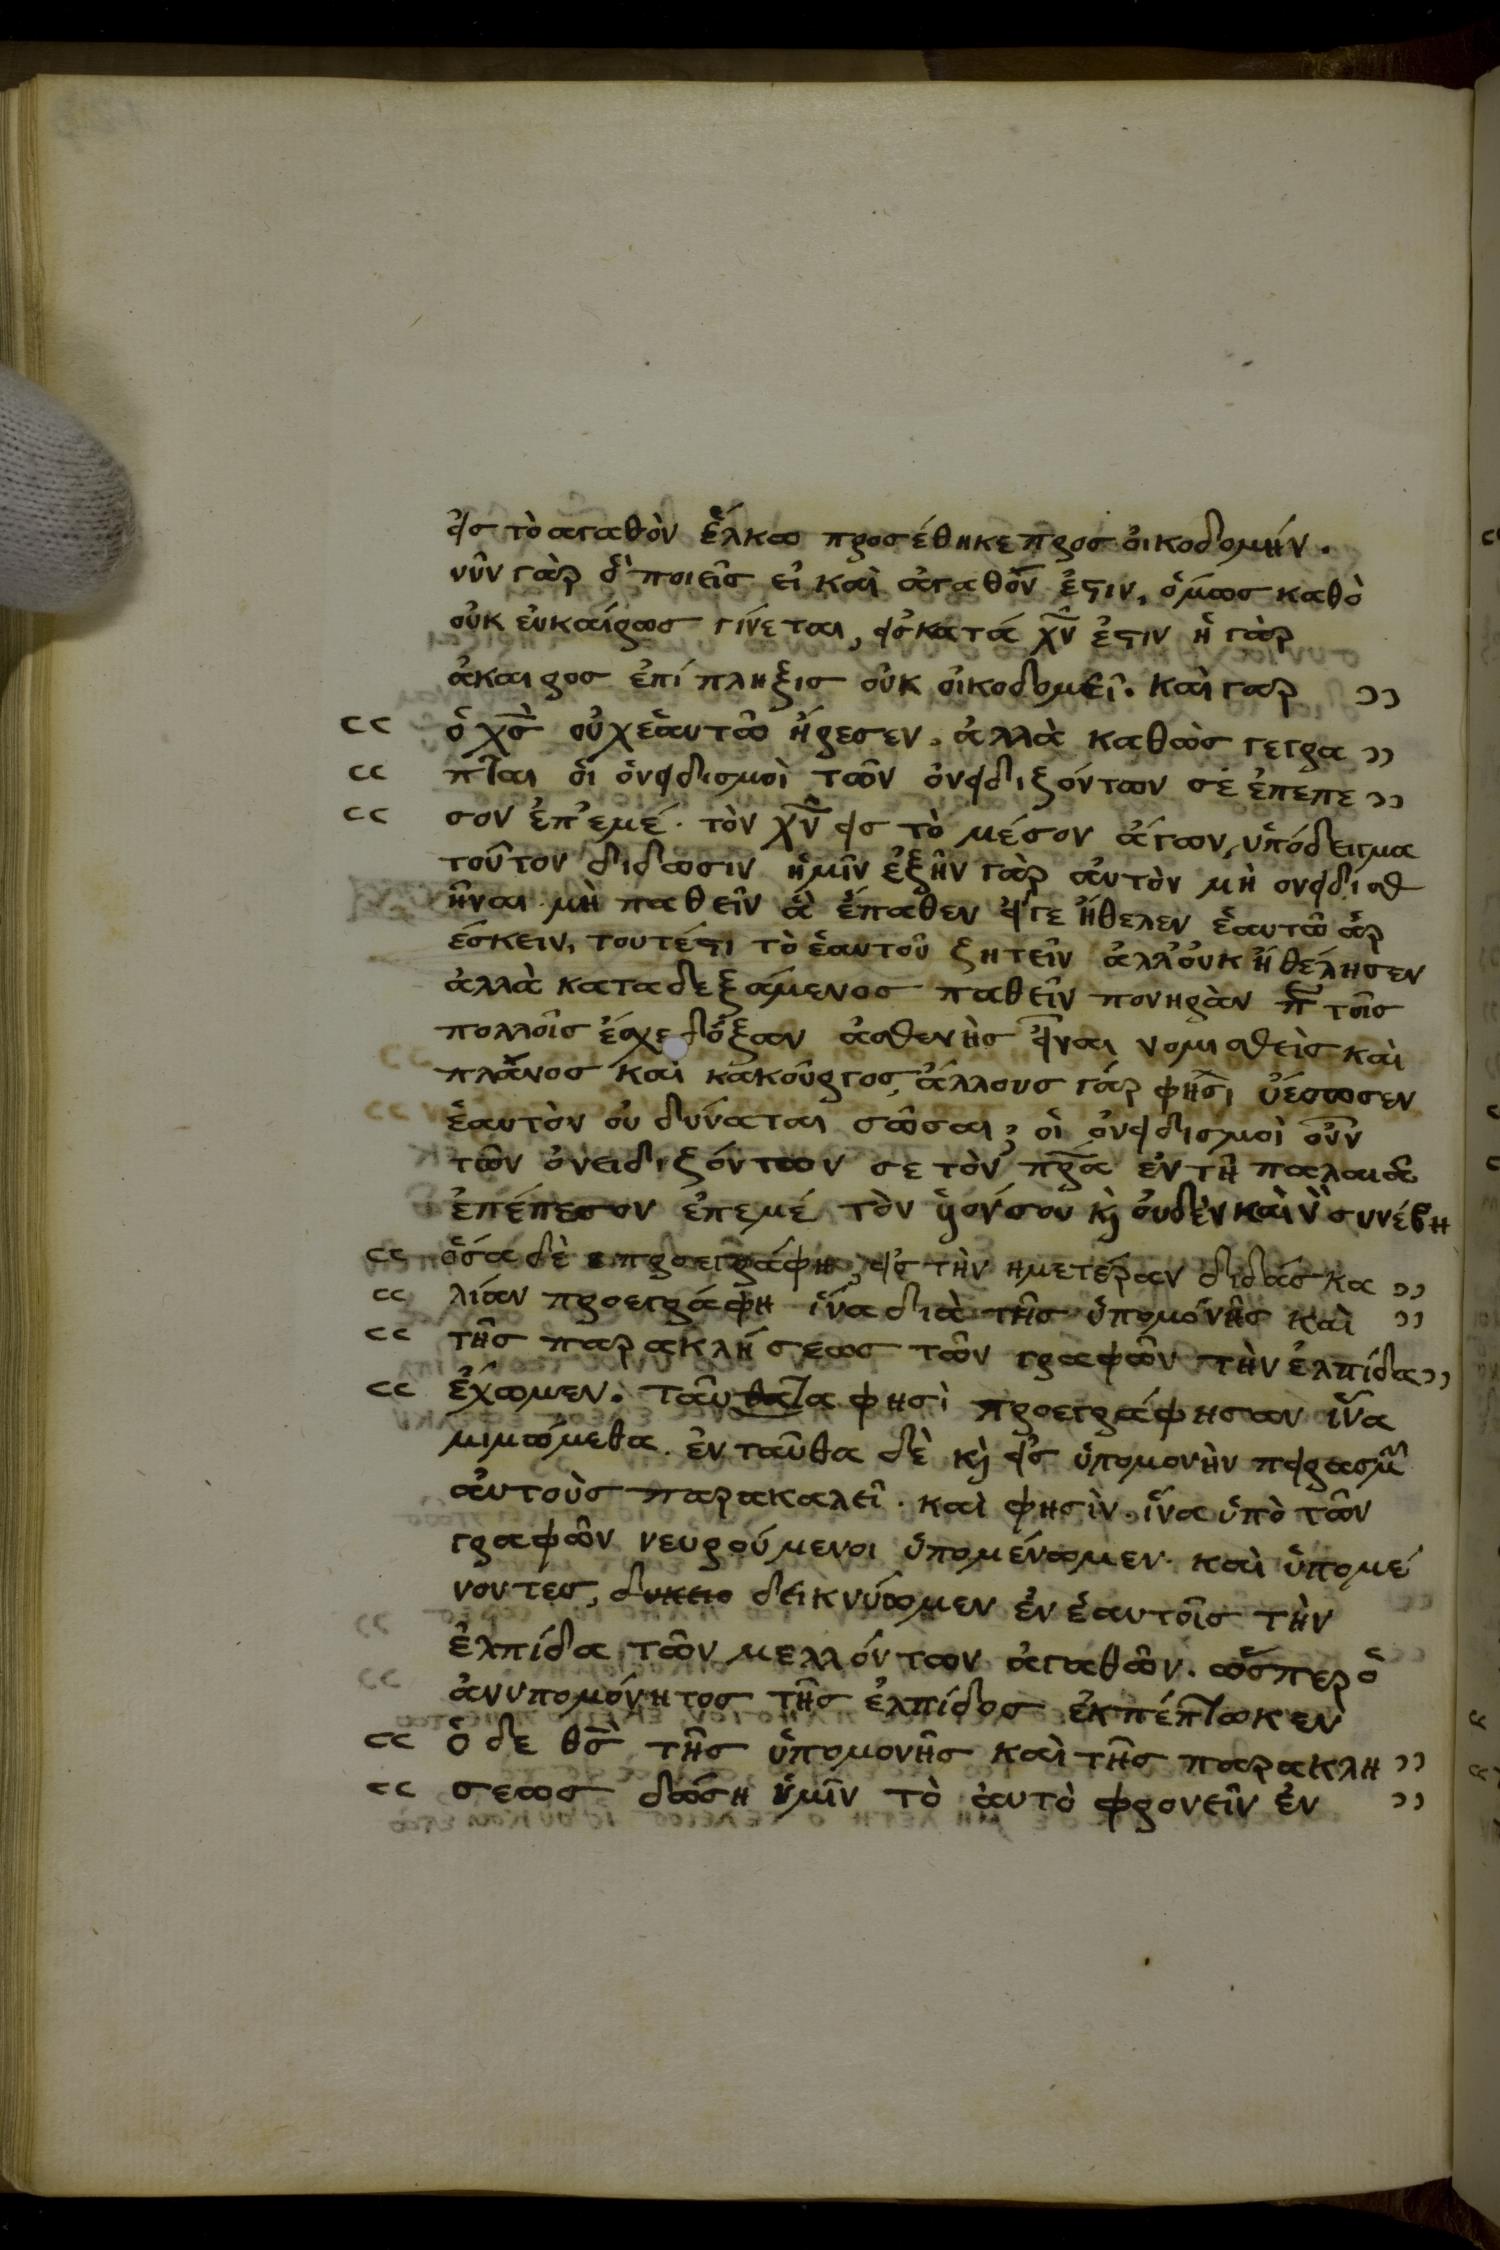 εἰς τὸ αγαθὸν ἕλκω προσέθηκε προς οἰκοδομήν.
νῦν γὰρ ὃ ποιεῖς εἰ καὶ ἀγαθὸν ἐστιν, ὅμως καθὸ
οὐκ εὐκαίρως γίνεται, εἰς κατά χν̅ ἐστιν ἡ γὰρ
ἀκαιρος ἐπίπληξις οὐκ οἰκοδομεῖ. καὶ γαρ ››
‹‹ ὁ χς̅ οὐχ ἑαυτῶ ἤρεσεν. ἀλλὰ καθὼς γεγρα ››
‹‹ πται οἱ ὀνειδισμοὶ τῶν ὀνειδιζόντων σέ ἐπεπε ››
‹‹ σον ἐπ' εμέ. τὸν χν̅ εἰς τὸ μέσον ἄγων, ὑπόδειγμα
τοῦτον δίδωσιν ἡμῖν ἐξῆν γὰρ αὐτὸν μὴ ονειδισθ
ῆναι μὴ παθεῖν ἃ ἔπαθεν εἴγε ἤθελεν ἑαυτῶ ἀρ
έσκειν, τουτέστι τὸ ἑαυτοῦ ζητεῖν ἀλλ' οὐκ ἠθέλησεν
ἀλλὰ καταδεξάμενος παθεῖν πονηρὰν π̅ τοῖς
πολλοῖς ἔσχε δόξαν ἀσθενὴς εἶναι νομισθεὶς καὶ
πλᾶνος καὶ κακοῦργος, ἄλλους γάρ φησι ἔσωσεν
ἑαυτὸν ου δύναται σῶσαι, οἱ ὀνειδισμοὶ οὖν
τῶν ὀνειδιζόντων σε τὸν πρ̅α ἐν τῆ παλαιᾶ
ἐπέπεσον ἐπεμέ τὸν υἱόν σου κ οὐδὲν καὶν συνέβη
‹‹ ὅσα δὲ προεγράφη, εἰς τὴν ημετέραν διδάσκα ››
‹‹ λίαν προεγράφη ἵνα διὰ τῆς ὑπομονῆς καὶ ››
‹‹ τῆς παρακλήσεως τῶν γραφῶν τὴν ἐλπίδα ››
‹‹ ἔχωμεν. ταῦθατα φησὶ προεγράφησαν ἵνα
μιμώμεθα. ἐνταῦθα δὲ κ εἰς ὑπομονὴν πειρασμ
αὐτοὺς παρακαλεῖ. καὶ φησὶν. ἵνα ὑπὸ τῶν
γραφῶν νευρούμενοι ὑπομένωμεν. καὶ ὑπομέ
νοντες, δεικνύωμεν ἐν ἑαυτοῖς τὴν
ἐλπίδα τῶν μελλόντων ἀγαθῶν. ὥσπερ ὁ
ἀνυπομόνητος τῆς ἐλπίδος ἐκπέπτωκεν
‹‹ ὁ δε θς̅ τῆς ὑπομονῆς καὶ τῆς παρακλη ››
‹‹ σεως δώση ὑμῖν τὸ ἀυτὸ φρονεῖν ἐν ››